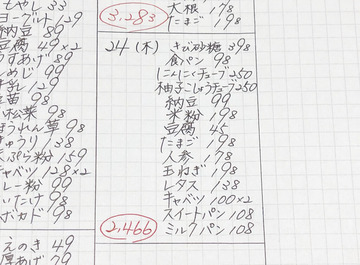 もやし 33
ヨーグルト 129
納豆 89
豆腐 49×2
うすあげ 89
しめじ 99
牛乳 129
豆苗 98
小松菜 98
ほうれん草 98
きゅうり 138
天ぷら粉 159
キャベツ 128×2
カレー粉 99
しいたけ 98
アボカド 98
えのき 49
厚あげ 79
大根 178
3,283 たまご 198
24(木) きび砂糖 398
食パン 98
にんにくチューブ 250
柚子こしょうチューブ 250
納豆 99
米粉 198
豆腐 45
たまご 198
人参 178
玉ねぎ 198
レタス 138
キャベツ 100×2
スイートパン 108
2,466 ミルクパン 108